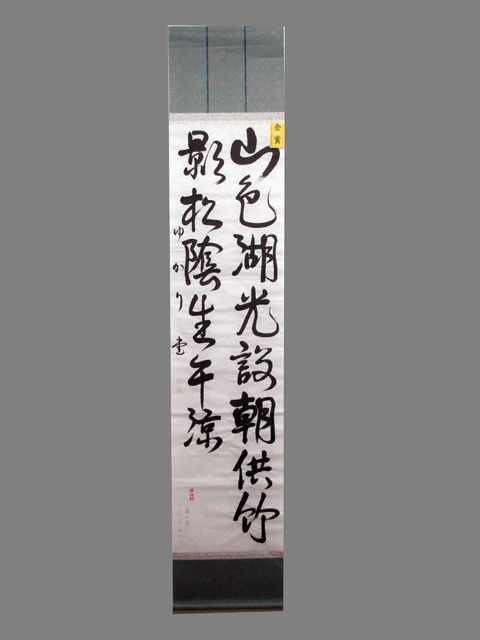 山色湖光設朝供竹
影松陰生午涼
ゆかり書
金賞